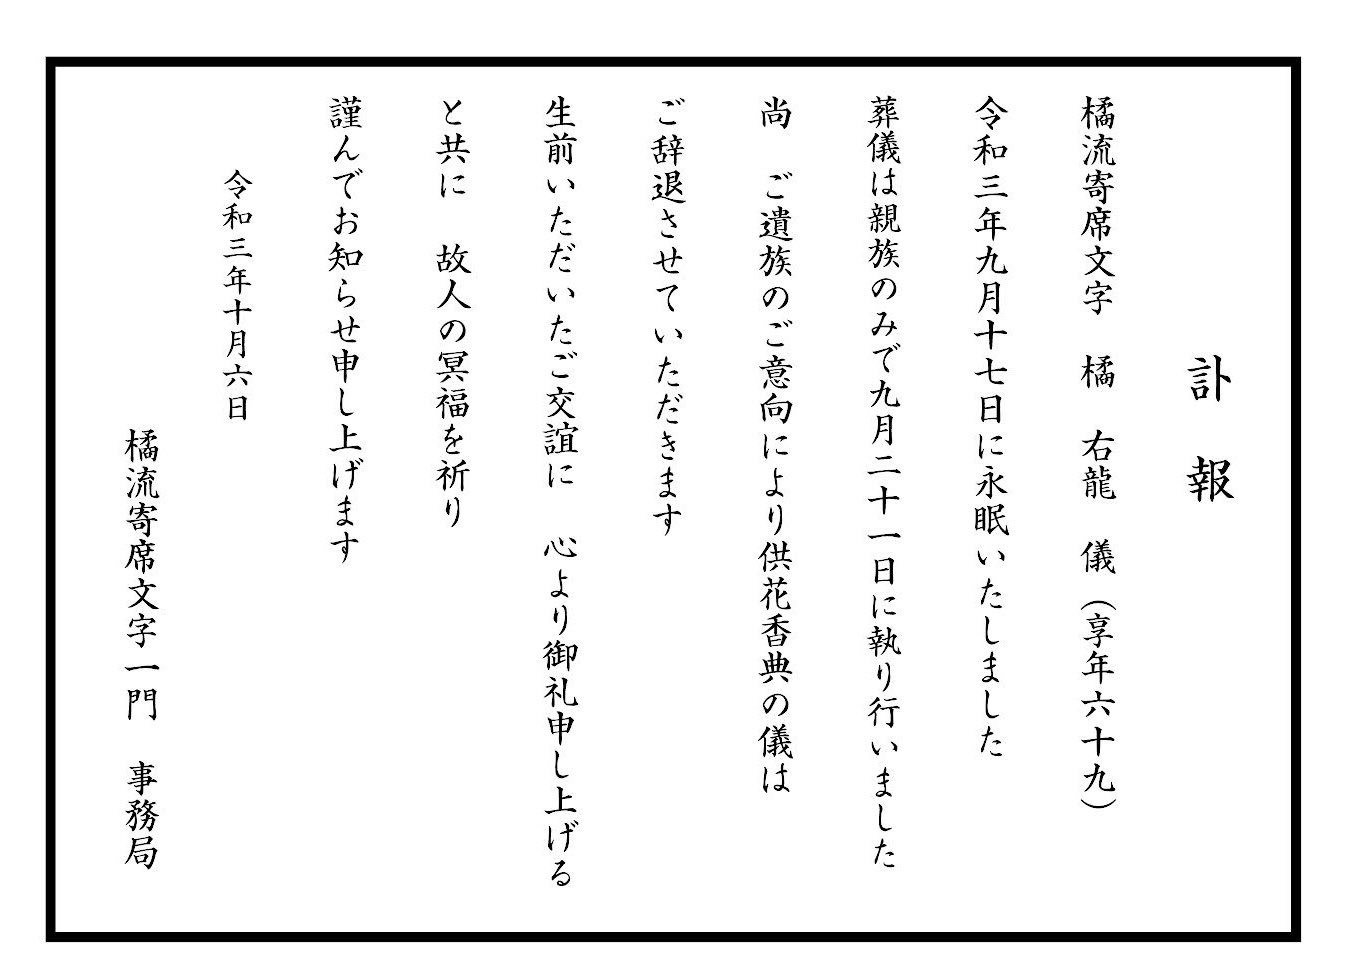 訃報
橘流寄席文字　橘　右龍　儀（享年六十九）
令和三年九月十七日に永眠いたしました
葬儀は親族のみで九月二十一日に執り行いました
尚　ご遺族のご意向により供花香典の儀は
ご辞退させていただきます
生前いただいたご交誼に　心より御礼申し上げる
と共に　故人の冥福を祈り
謹んでお知らせ申し上げます
令和三年十月六日
橘流寄席文字一門　事務局